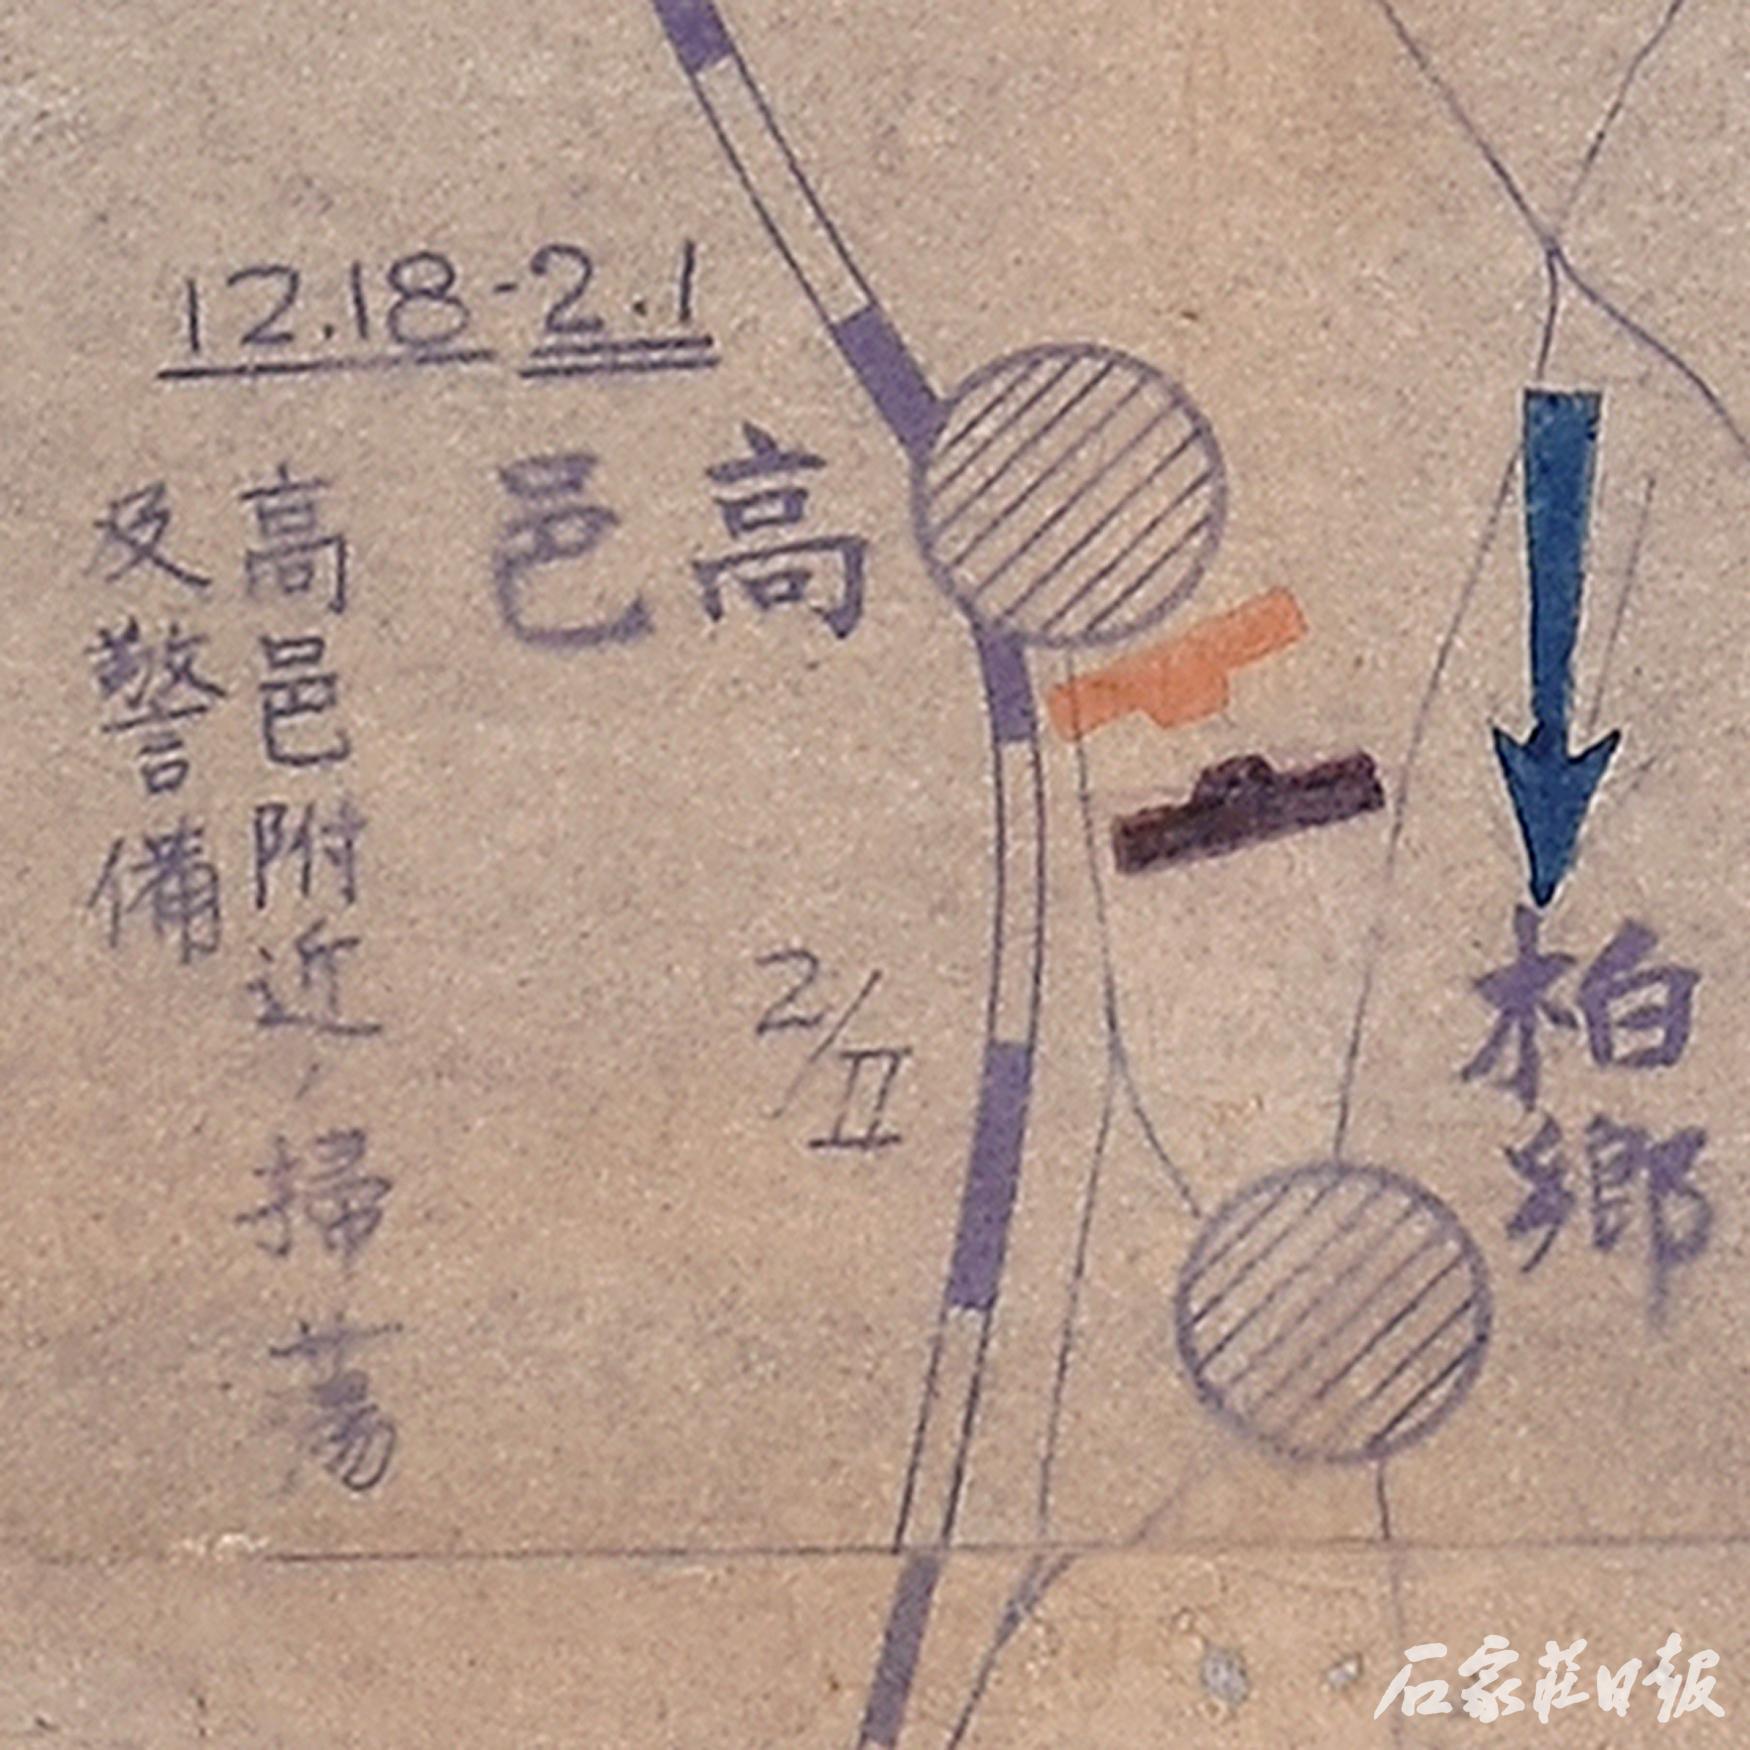 12.18-2.1
高邑
高邑附近ノ掃蕩
及警備
2/II
柏鄉
石家莊日報